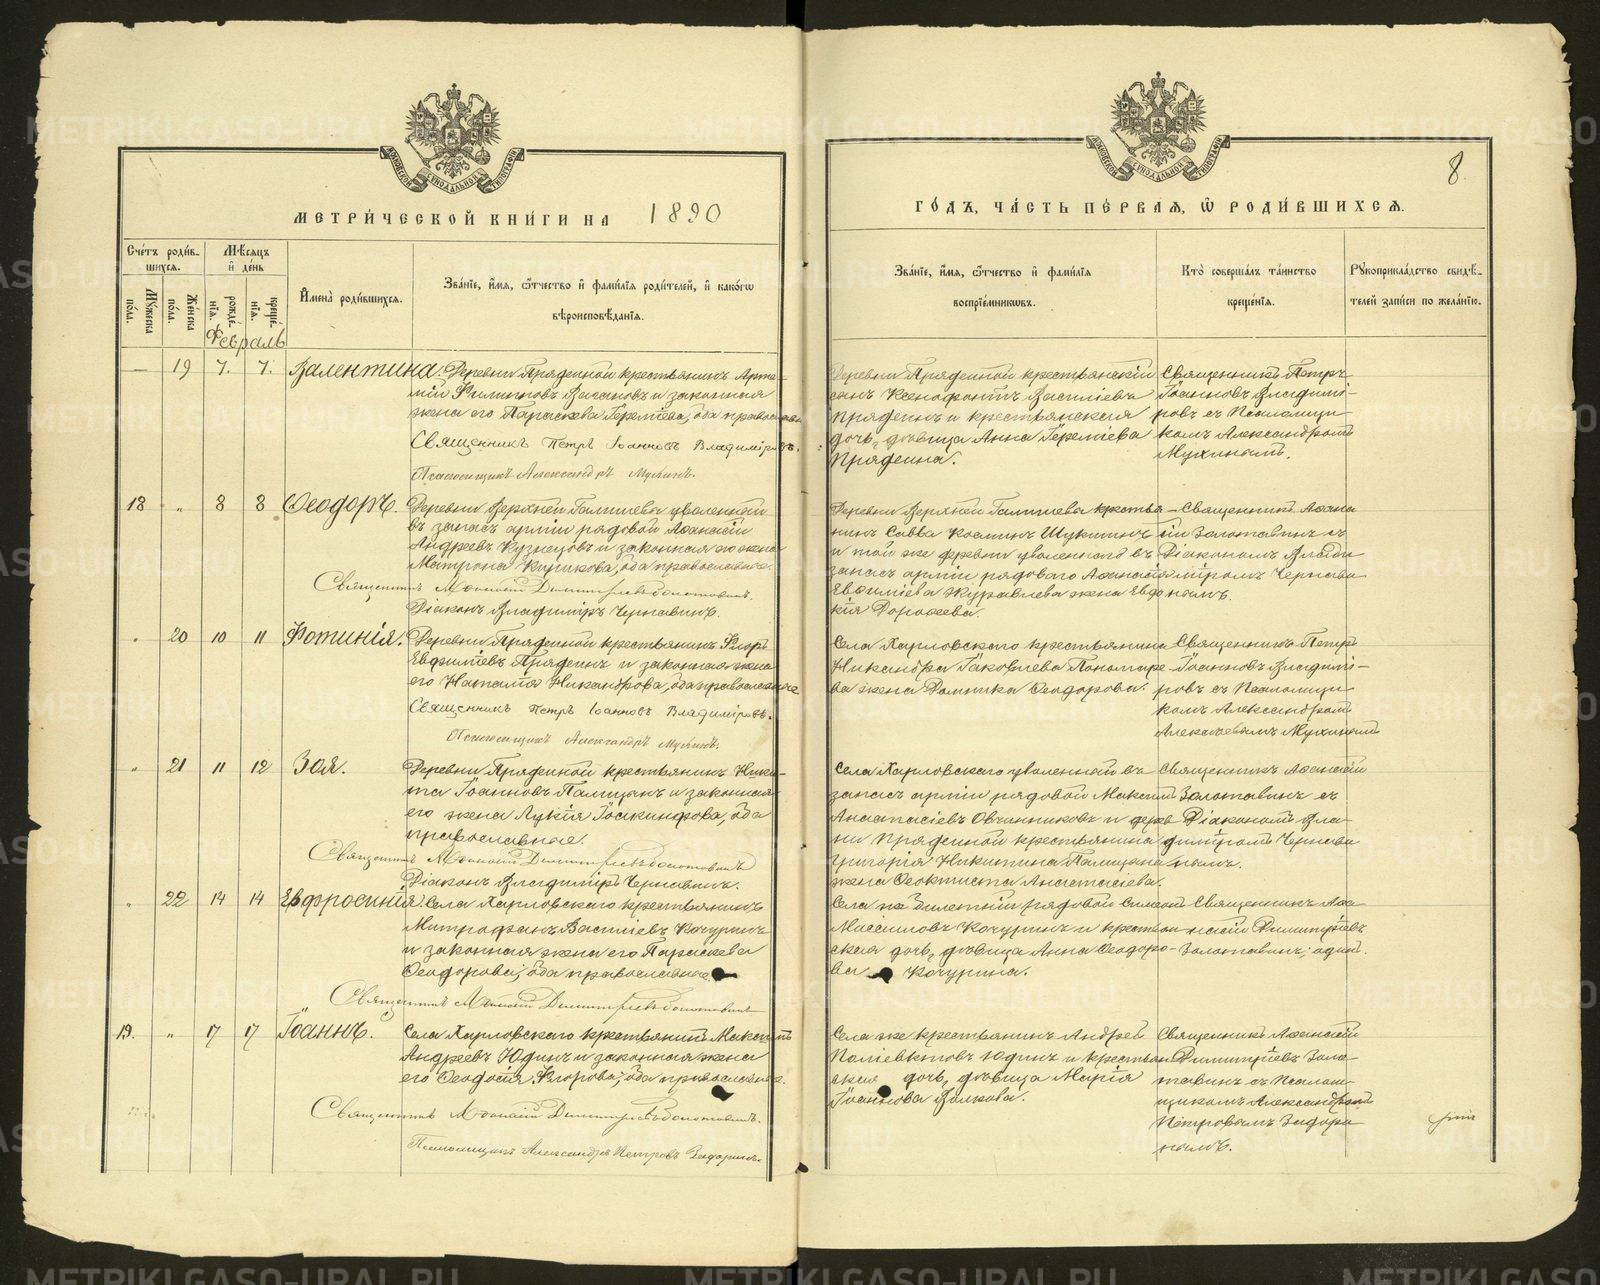 МЕТРИ́ЧЕСКОЙ КНИ́ГИ НА 1890
Сче́тъ роди́вшихся.
Мѣ́сяцъ и҆ де́нь
И҆мена̀ роди́вшихся.
Зва́нїе, и҆́мя, ѻ҆́тчество и҆ фами́лїя роди́телей, и҆ како́гѡ
вѣроисповѣ́данїя.
Му́жеска по́ла.
Же́нска по́ла.
рожде́нїя.
креще́нїя.
Февраль
— 19 7. 7. Валентина.
Деревни Пряденной крестьянинъ Арте-
мій Филипповъ и законная
жена его Параскева Іереміева, оба православные
Священникъ Петръ Іоанновъ Владиміровъ.
Псаломщикъ Александръ Мухинъ.
18 „ 8 8 Ѳеодоръ.
Деревни Верхней Галишева уволенный
въ запасъ арміи рядовой Аѳанасій
Андреевъ Кузнецовъ и законная его жена
Матрона оба православные.
Священникъ Аѳанасій Димитріевъ Золотавинъ.
Діаконъ Владиміръ Чернавинъ.
„ 20 10 11 Фотинія.
Деревни Пряденной крестьянинъ Егоръ
Евѳиміевъ Пряденъ и законная жена
его Наталія Никандрова, оба православные.
Священникъ Петръ Іоанновъ Владиміровъ.
Псаломщикъ Александръ Мухинъ.
„ 21 11 12 Зоя.
Деревни Пряденной крестьянинъ Ники-
та Іоанновъ Палицынъ и законная
его жена Лукія Іоакинфова, оба
православные.
Священникъ Аѳанасій Димитріевъ Золотавинъ
Діаконъ Владиміръ Чернавинъ.
„ 22 14 14 Евфросинія.
Села Харловскаго крестьянинъ
Митрофанъ Васіліевъ Кочуринъ
и законная жена его Параскева
Ѳеодорова, оба православные.
Священникъ Аѳанасій Димитріевъ Золотавинъ
19. „ 17 17 Іоаннъ.
Села Харловскаго крестьянинъ Максимъ
Андреевъ Юдинъ и законная жена
его Ѳеодосія Егорова, оба православные.
Священникъ Аѳанасій Димитріевъ Золотавинъ.
Псаломщикъ Александръ Петровъ Задоринъ.
8
ГО́ДЪ, ЧА́СТЬ ПЕ́РВАЯ, Ѡ҆ РОДИ́ВШИХСЯ.
Зва́нїе, и҆́мя, ѻ҆́тчество и҆ фами́лїя
воспрїе́мникѡвъ.
Кто̀ соверша́лъ та́инство
креще́нїя.
Рꙋкоприкла́дство свидѣ́-
телей за́писи по жела́нїю.
Деревни Пряденной крестьянскій
сынъ Ксенофонтъ Васіліевъ
Пряденъ и крестьянская
дочь, дѣвица Анна Іереміева
Прядеина.
Священникъ Петръ
Іоанновъ Владимі-
ровъ съ Псаломщи-
комъ Александромъ
Мухинымъ.
Деревни Верхней Галишева крестья-
нинъ Савва Космин Щукинъ
и той же деревни уволеннаго въ
запасъ арміи рядоваго Аѳанасія
Евѳиміева Журавлева жена Евдо-
кія Дороѳеева.
Священникъ Аѳана-
сій Золотавинъ съ
Діакономъ Влади-
міромъ Чернави-
нымъ.
Села Харловскаго крестьянина
Никандра Іаковлева Пономаре-
ва жена Домника Ѳеодорова.
Священникъ Петръ
Іоанновъ Владимі-
ровъ съ Псаломщи-
комъ Александромъ
Алексѣевымъ Мухинымъ
Села Харловскаго уволенный въ
запасъ арміи рядовой Максимъ
Анастасіевъ Овчинниковъ и дерев-
ни Пряденной крестьянина
Григорія Никитина Палицына
жена Ѳеоктиста Анастасіева.
Священникъ Аѳанасій
Золотавинъ съ
Діакономъ Вла-
диміромъ Чернави-
нымъ.
Села же билетній рядовой Симеонъ
Кочуринъ и крестьян-
ская дочь, дѣвица Анна Ѳеодоро-
ва Кочурина.
Священникъ Аѳа-
насій Димитріевъ
Золотавинъ, одинъ.
Села же крестьянинъ Андрей
Поліевктовъ Юдинъ и крестьян-
ская дочь, дѣвица Марія
Іоаннова Волкова.
Священникъ Аѳанасій
Димитріевъ Золо-
тавинъ съ Псалом-
щикомъ Александромъ
Петровымъ Задори-
нымъ.
METRIKI.GASO-URAL.RU